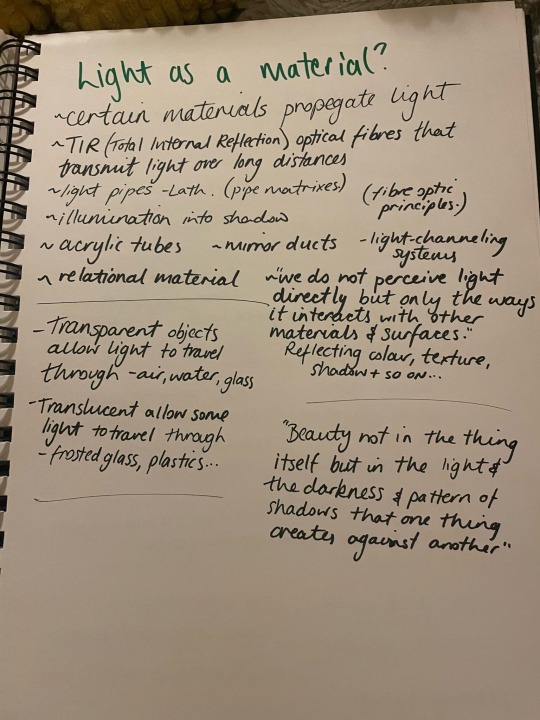 Light as a material?
~certain materials propegate light
~TIR (Total Internal Reflection) optical fibres that
transmit light over long distances
~light pipes -Lath. (pipe matrixes)
(fibre optic
principles.)
~illumination into shadow
~ acrylic tubes ~mirror ducts -light-channeling
systems
~ relational material
~"we do not perceive light
directly but only the ways
it interacts with other
materials & surfaces."
Reflecting colour, texture,
shadow + so on...
-Transparent objects
allow light to travel
through -air, water, glass
-Translucent allow some
light to travel through
-frosted glass, plastics...
"Beauty not in the thing
itself but in the light &
the darkness & pattern of
shadows that one thing
creates against another"